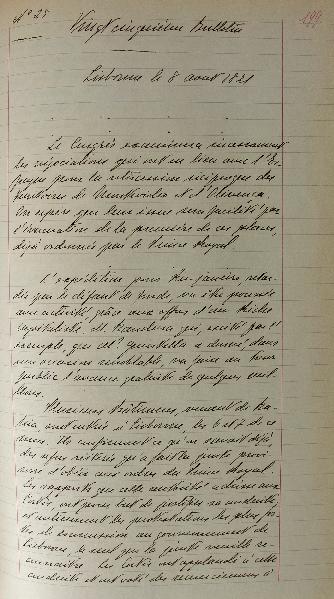 Nº 25
Vingt cinquième Bulletin
199
Lisbonne le 8 août 1821
Le Congrès examinera incessamment
les négociations qui ont eu lieu avec l'Es-
pagne pour la rétrocession réciproque des
territoires de Montevideo et d'Olivença.
On espère que leur issue sera facilitée par
l'évacuation de la première de ces places,
déjà ordonnée par le Prince Royal.
L'expédition pour Rio-janeiro, retar-
dée par le défaut de fonds va être poussée
avec activité, grâce aux offres d'un riche
capitaliste, M. qui, excité par l'
exemple, que Mr. Quintella a donné, dans
une occasion semblable, va faire au trésor
public l'avance gratuite de quelques mil-
lions.
Plusieurs Bâtiments, venant de Ba-
hia, sont entrés à Lisbonne, les 6 et 7 de ce
mois. Ils confirment ce qu'on savait déjà
des refus réitérés qu'a fait la junte provi-
soire d'obéir aux ordres du Prince Royal.
Les rapports que cette autorité adresse aux
Cortès, ont pour but de justifier sa conduite,
et contiennent des protestations les plus for-
tes de soumission au gouvernement de
Lisbonne, le seul que la junte veuille re-
connaître. Les Cortès ont applaudi à cette
conduite et ont voté des remercîmens à